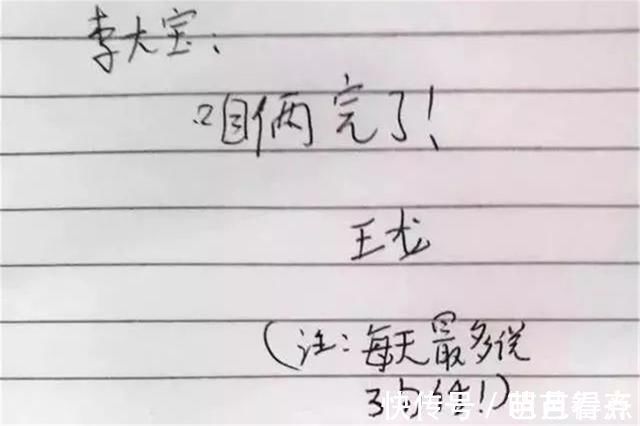 李大宝:
咱俩完了!
王龙
(注:每天最多说
3句话!)
快传号/